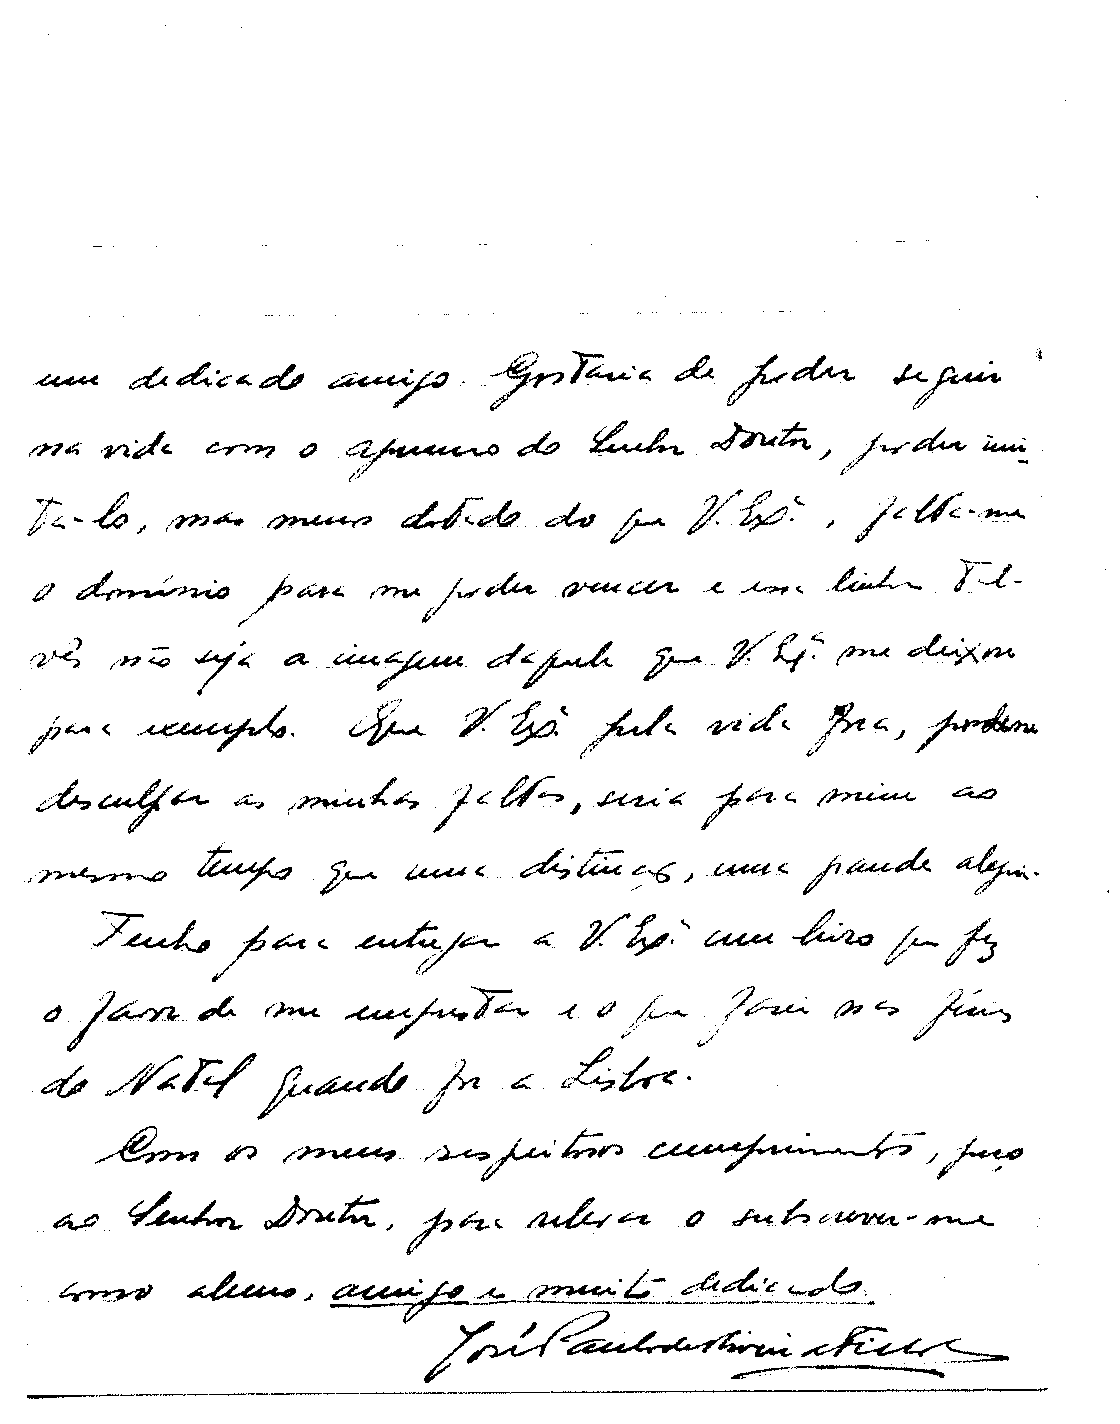 um dedicado amigo. Gostaria de poder seguir
na vida com o aprumo do Senhor Doutor, poder imi-
ta-lo, mas menos dotado do que V. Exª., falta-me
o domínio para me poder vencer e essa linha tal-
vês não seja a imagem daquela que V. Exª. me deixou
para exemplo. Que V. Exª. pela vida fora,
desculpar as minhas faltas, seria para mim ao
mesmo tempo que uma distinção, uma grande alegria.
Tenho para entregar a V. Exª. um livro que fez
o favor de me emprestar e o que farei nas férias
do Natal quando for a Lisboa.
Com os meus respeitosos cumprimentos, peço
ao Senhor Doutor, para relevar o subscrever-me
como aluno, amigo e muito dedicado
José Paulo de